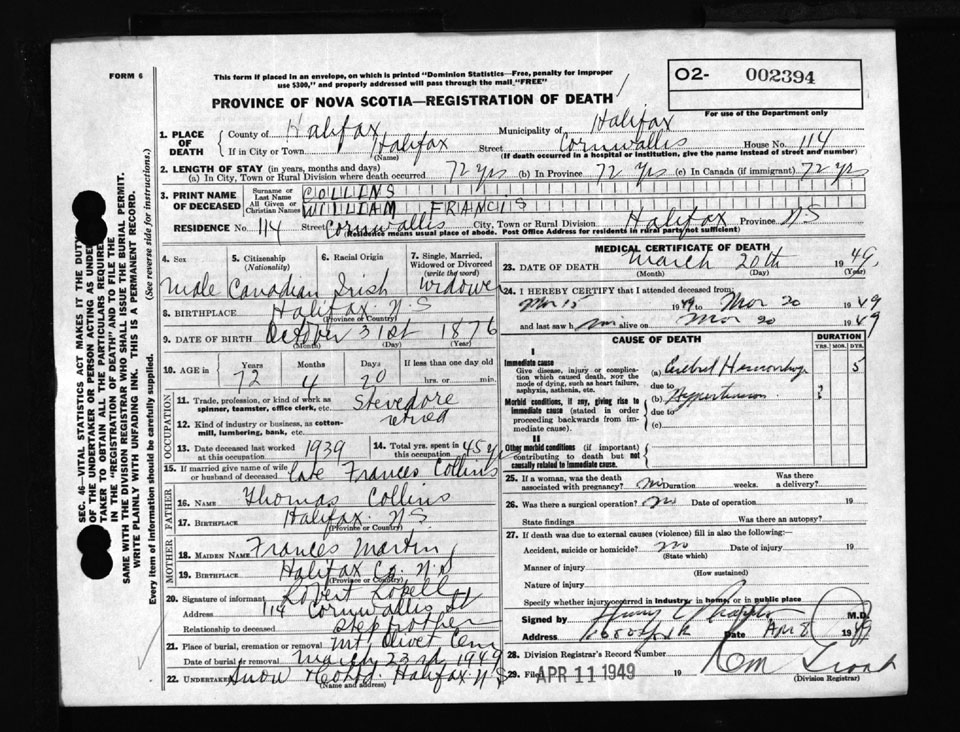 FORM 6
This form if placed in an envelope, on which is printed "Dominion Statistics—Free, penalty for improper
use $300," and properly addressed will pass through the mail "FREE"
O2- 002394
For use of the Department only
PROVINCE OF NOVA SCOTIA—REGISTRATION OF DEATH
1. PLACE OF DEATH
County of Halifax Municipality of Halifax
If in City or Town Halifax Street Cornwallis House No. 114
(Name) (If death occurred in a hospital or institution, give the name instead of street and number)
2. LENGTH OF STAY (in years, months and days)
(a) In City, Town or Rural Division where death occurred 72 yrs (b) In Province 72 Yrs (c) In Canada (if immigrant) 72 yrs
3. PRINT NAME OF DECEASED
Surname or Last Name COLLINS
All Given or Christian Names WILLIAM FRANCIS
RESIDENCE No. 114 Street Cornwallis City, Town or Rural Division Halifax Province NS
(Residence means usual place of abode. Post Office Address for residents in rural parts not sufficient)
4. Sex
Male
5. Citizenship
(Nationality)
Canadian
6. Racial Origin
Irish
7. Single, Married, Widowed or Divorced
(write the word)
Widower
8. BIRTHPLACE Halifax N.S
(Province or Country)
9. DATE OF BIRTH October 31st 1876
(Month) (Day) (Year)
10. AGE in Years Months Days If less than one day old
72 4 20 hrs. or min.
OCCUPATION
11. Trade, profession, or kind of work as
spinner, teamster, office clerk, etc. Stevedore
retired
12. Kind of industry or business, as cotton-
mill, lumbering, bank, etc.
13. Date deceased last worked
at this occupation 1939
14. Total yrs. spent in
this occupation 45 yrs
15. If married give name of wife
or husband of deceased Late Frances Collins
FATHER
16. Name Thomas Collins
17. Birthplace Halifax N.S.
(Province or Country)
MOTHER
18. Maiden Name Frances Martin
19. Birthplace Halifax Co. N.S
(Province or Country)
20. Signature of informant Robert
Address 114 Cornwallis St
Relationship to deceased Stepbrother
21. Place of burial, cremation or removal Mt Olivet Cem
Date of burial or removal March 23rd 1949
22. Undertaker Snow & Co Ltd. Halifax N S
(Name and address)
MEDICAL CERTIFICATE OF DEATH
23. DATE OF DEATH March 20th 1949
(Month) (Day) (Year)
24. I HEREBY CERTIFY that I attended deceased from:
Mar 15 1949 to Mar 20 1949
and last saw him alive on Mar 20 1949
CAUSE OF DEATH
DURATION
YRS. MOS. DYS.
I
Immediate cause
Give disease, injury or complica-
tion which caused death, not the
mode of dying, such as heart failure,
asphyxia, asthenia, etc.
(a) Cerebral Hemorrhage 5
due to
Morbid conditions, if any, giving rise to
immediate cause (stated in order
proceeding backwards from im-
mediate cause).
(b) Hypertension ?
due to
(c)
II
Other morbid conditions (if important)
contributing to death but not
causally related to immediate cause.
25. If a woman, was the death
associated with pregnancy? no Duration weeks. Was there a delivery?
26. Was there a surgical operation? no Date of operation 19
State findings Was there an autopsy?
27. If death was due to external causes (violence) fill in also the following:
Accident, suicide or homicide? no Date of injury 19
(State which)
Manner of injury
(How sustained)
Nature of injury
Specify whether injury occurred in industry, in home, or in public place
Signed by M.D.
Address Date Apr 8 1949
28. Division Registrar's Record Number
29. Filed APR 11 1949 19
(Division Registrar)
SEC. 46—VITAL STATISTICS ACT MAKES IT THE DUTY
OF THE UNDERTAKER OR PERSON ACTING AS UNDER-
TAKER TO OBTAIN ALL THE PARTICULARS REQUIRED
IN THE "REGISTRATION OF DEATH" AND TO FILE THE
SAME WITH THE DIVISION REGISTRAR WHO SHALL ISSUE THE BURIAL PERMIT.
WRITE PLAINLY WITH UNFADING INK. THIS IS A PERMANENT RECORD.
Every item of information should be carefully supplied. (See reverse side for instructions.)